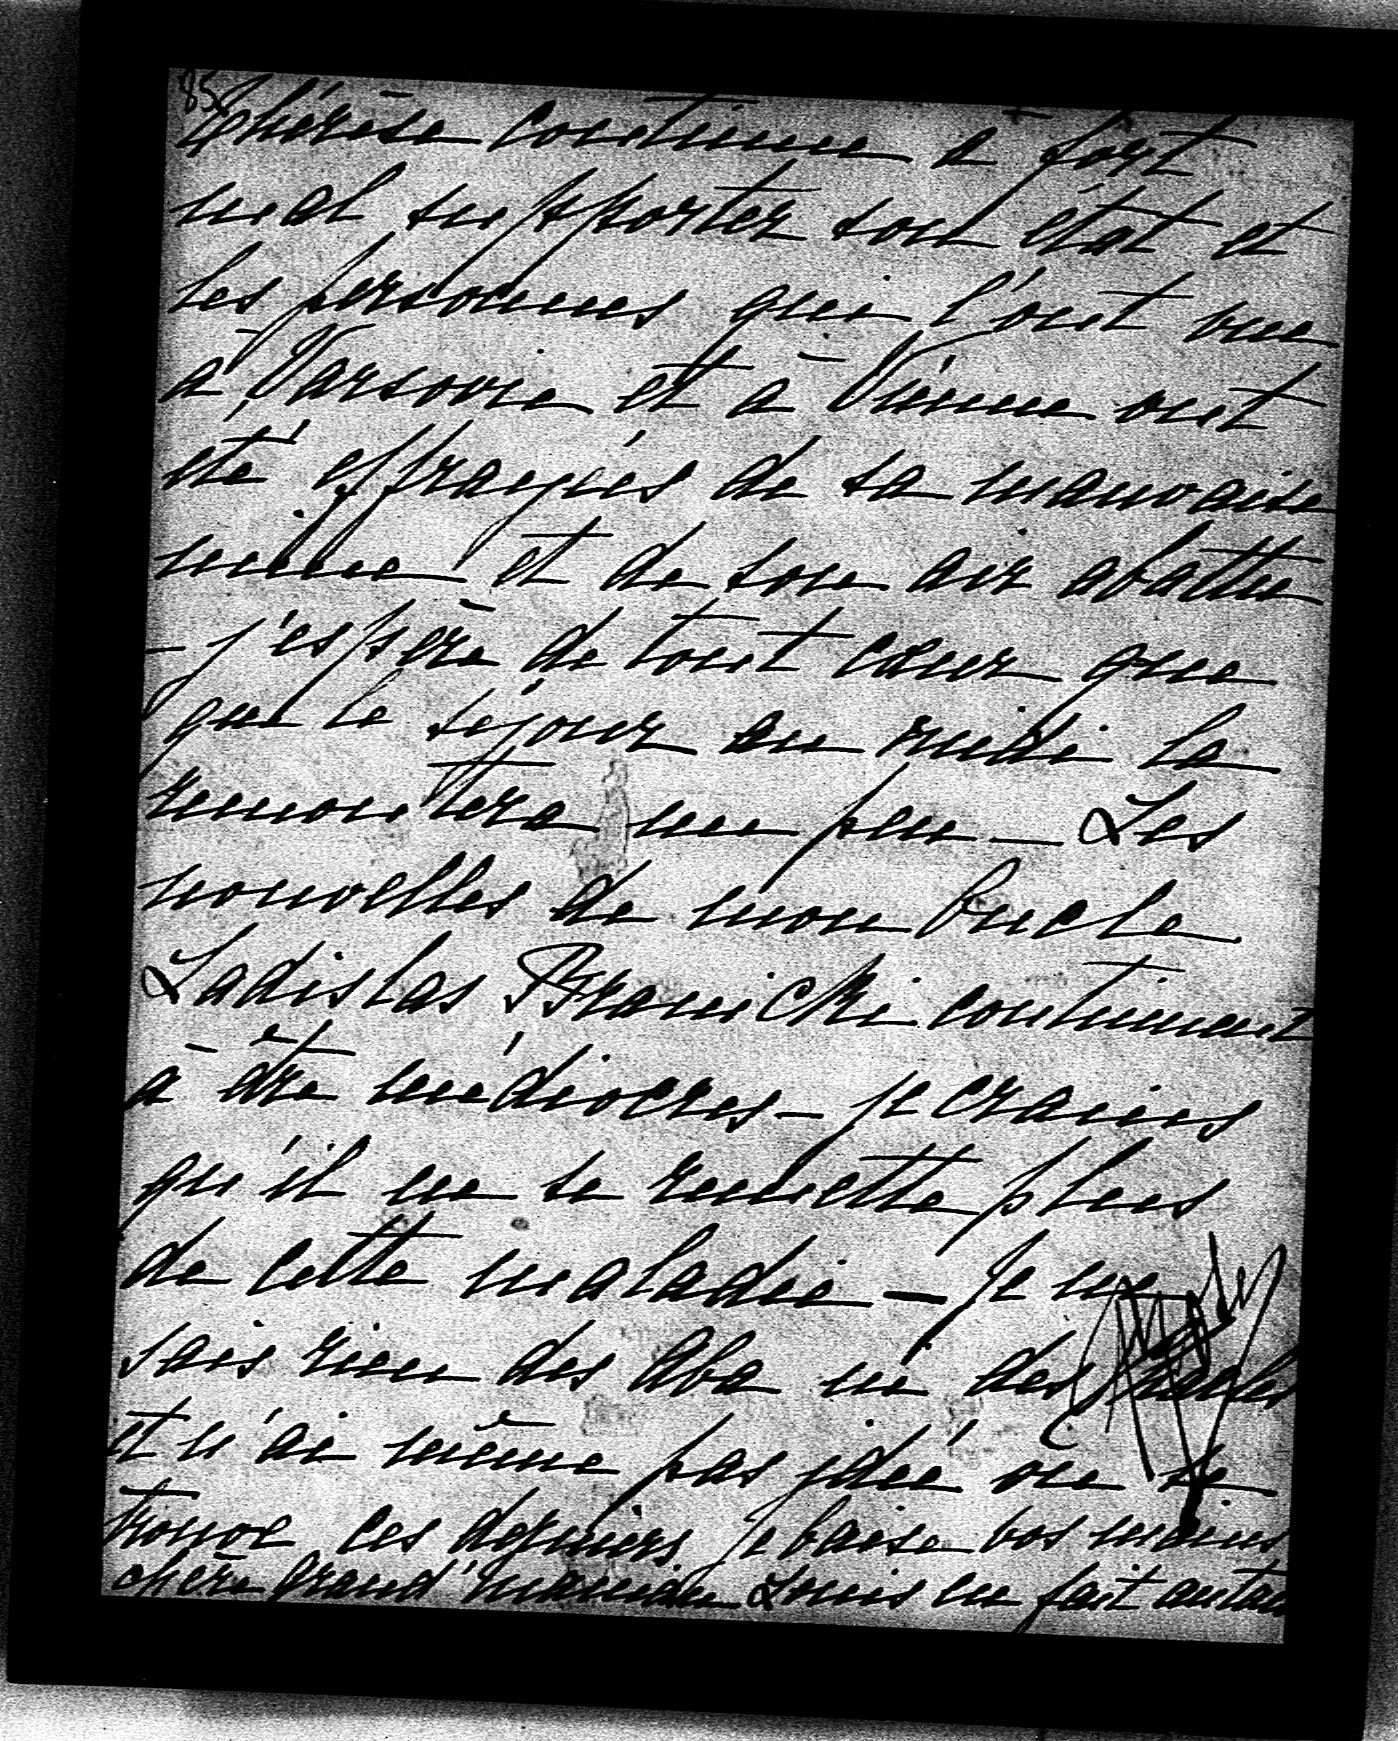 85
Thérèse continue à fort
mal supporter son état et
les personnes qui l'ont vue
à Varsovie et à Vienne ont
été effrayées de sa mauvaise
mine et de son air abattu
- j'espère de tout cœur que
que le séjour au midi la
remontera un peu — Les
nouvelles de mon Oncle
Ladislas Branicki continuent
à être médiocres — je crains
qu'il ne se remette plus
de cette maladie — Je ne
sais rien des Aba ni des
et n'ai même pas idée où se
trouve ces derniers. Je baise vos mains
chère Grand'maman Louis en fait autan